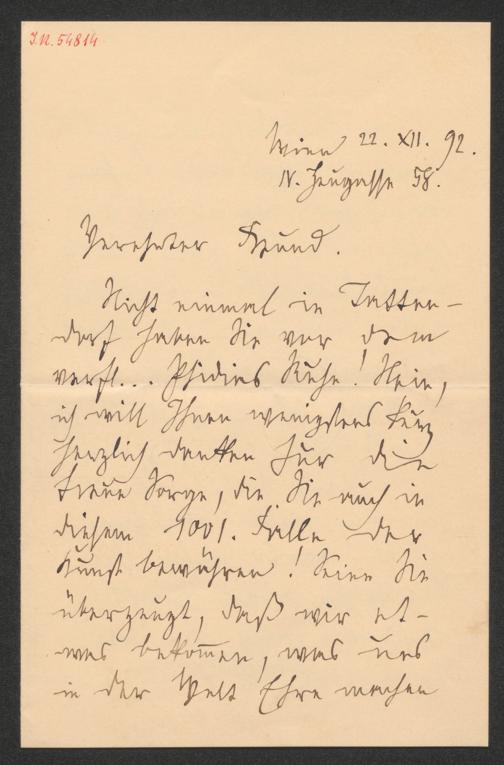 J.N. 54814
Wien 22. XII. 92.
IV. Heugasse 58.
Verehrter Freund.
Nicht einmal in Tatten-
dorf haben Sie vor dem
verfl... Phidias Ruhe! Nein,
ich will Ihnen wenigstens kurz
herzlich danken für die
treue Sorge, die Sie auch in
diesem 1001. Falle der
Kunst bewähren! Seien Sie
überzeugt, daß wir et-
was bekom̅en, was uns
in der Welt Ehre machen